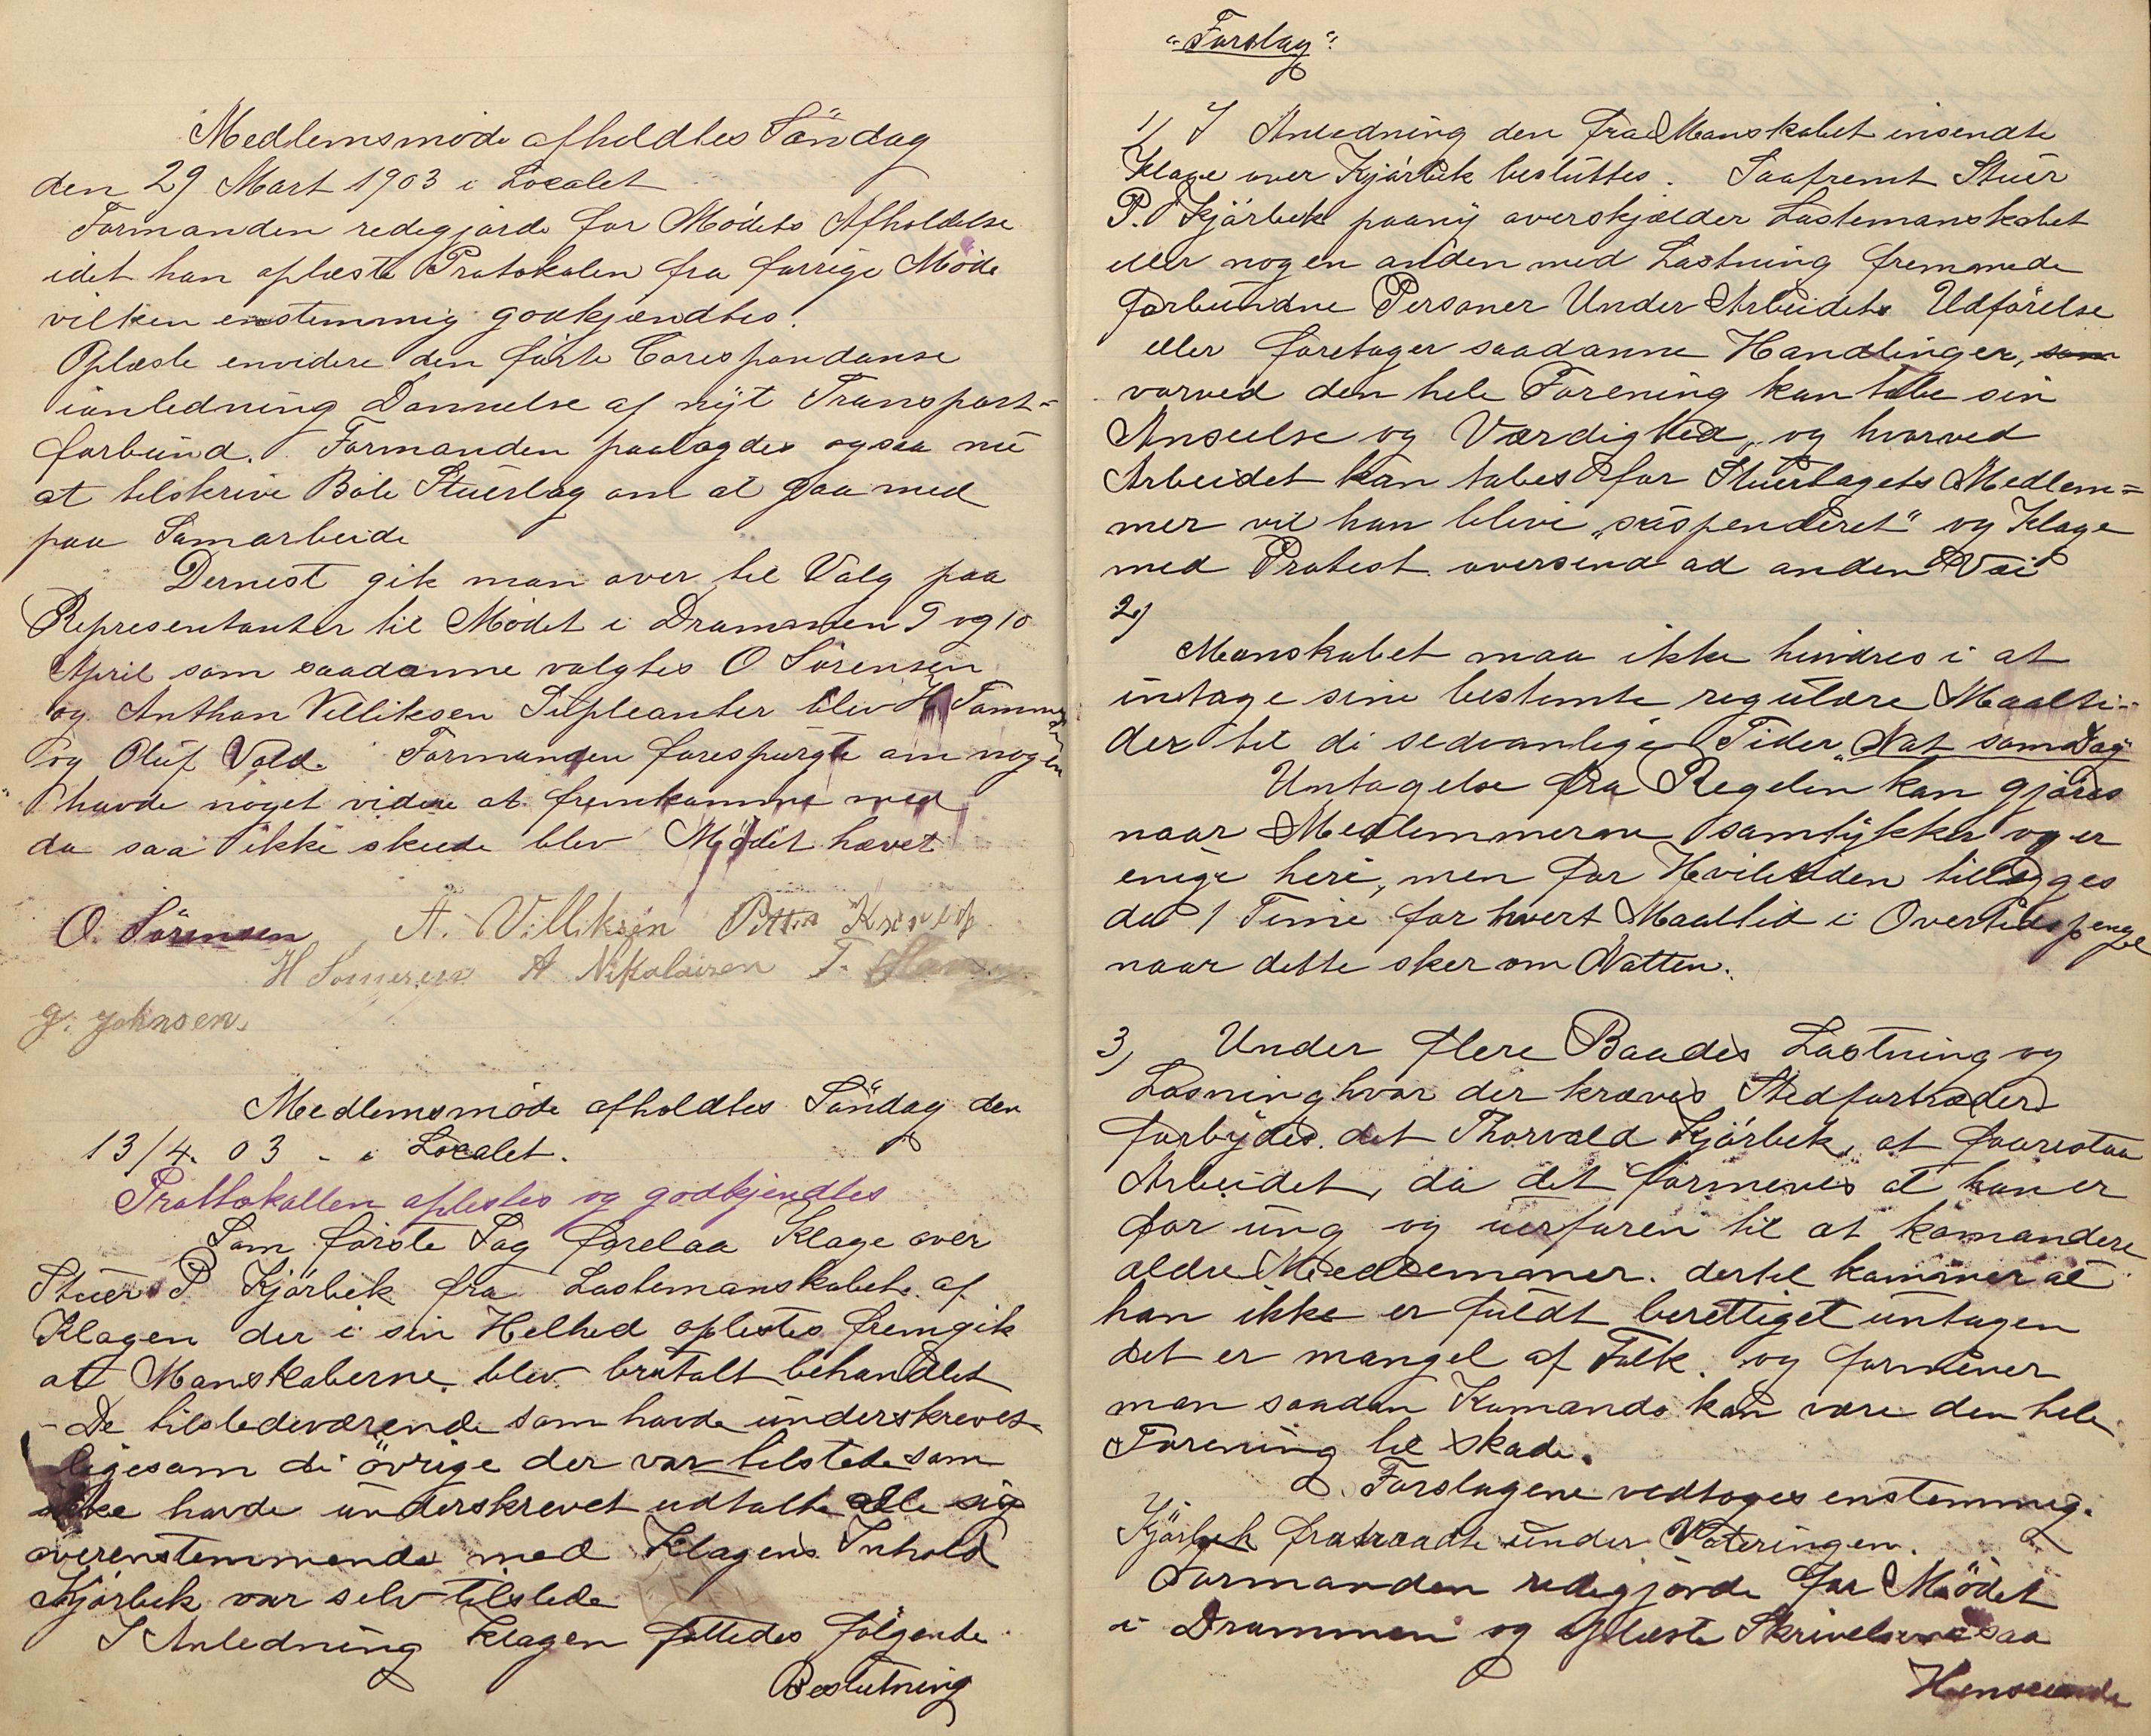 Medlemsmöde afholdtes Söndag
den 29 Mart 1903 i Localet
Formanden redegjorde for Mödets Afholdelse
idet han oplæste Protokolen fra forrige Möde
vilken enstemmig godkjændtes.
Oplæste envidere den förte Corespondanse
ianledning Dannelse af nyt Transport=
forbund. Formanden paalagdes ogsaa nu
at tilskrive Böle Stuerlag om at gaa med
paa Samarbeide
Dernest gik man over til Valg paa
Representanter til Mödet i Drammen 9 og 10
April som saadanne valgtes O Sörensen
og Anthon Villiksen Supleanter blev H Sommer
og Oluf Vold. Formanden forespurgte om nogen
havde noget videre at fremkomme med
da saa ikke skeede blev Mödet hævet
O. Sörensen A. Villiksen
H Somersen A Nikolaisen T.
G. Johnsen.
Medlemsmöde afholdtes Söndag den
13/4. 03 - i Localet.
Prottokollen oplestes og godkjendtes
Som förste Sag forelaa Klage over
Stuer P Kjörbek fra Lastemanskabet. af
Klagen der i sin Helhed oplestes fremgik
at Manskaberne blev brutalt behandlet
- De tilstedeværende som havde underskrevet
ligesom de övrige der var tilstede som
ikke havde underskrevet udtalte alle sig
overenstemmende med Klagens Inhold
Kjörbek var selv tilstede
I Anledning Klagen fattedes følgende
Beslutning
"Forslag".
1) I Anledning den fra Manskabet insendte
Klage over Kjörbek besluttes. Saafremt Stuer
P. Kjörbek paany overskjælder Lastemanskabet
eller nogen anden med Lastning fremmede
forbundne Personer Under Arbeidets Udförelse
eller foretager saadanne Handlinger, som
vorved den hele Forening kan tabe sin
Anseelse og Værdighed, og hvorved
Arbeidet kan tabes for Stuerlagets Medlem=
mer vil han blive "suspenderet" og Klage
med Protest oversend ad anden Vei
2)
Manskabet maa ikke hindres i at
intage sine bestemte regulære Maalti-
der til di sedvanlige Tider "Nat som Dag"
Untagelse fra Regelen kan gjöres
naar Medlemmerne samtykker og er
enige heri, men for Hviletiden tillægges
da 1 Time for hvert Maaltid i Overtidspenge
naar dette sker om Natten.
3) Under flere Baades Lastning og
Losning hvor der kræves Stedfortræder
forbydes det Thorvald Kjörbek, at forestaa
Arbeidet, da det formenes at han er
for ung og uerfaren til at komandere
ældre Medlemmer. dertil kommer at
han ikke er fuldt berettiget untagen
det er mangel af Folk. og formener
man saadan Komando kan være den hele
Forening til skade.
Forslagene vedtoges enstemmig.
Kjörbek fratraadte under Voteringen.
Formanden redegjorde for Mödet
i Drammen og oplæste Skrivelserne saa
Henseende